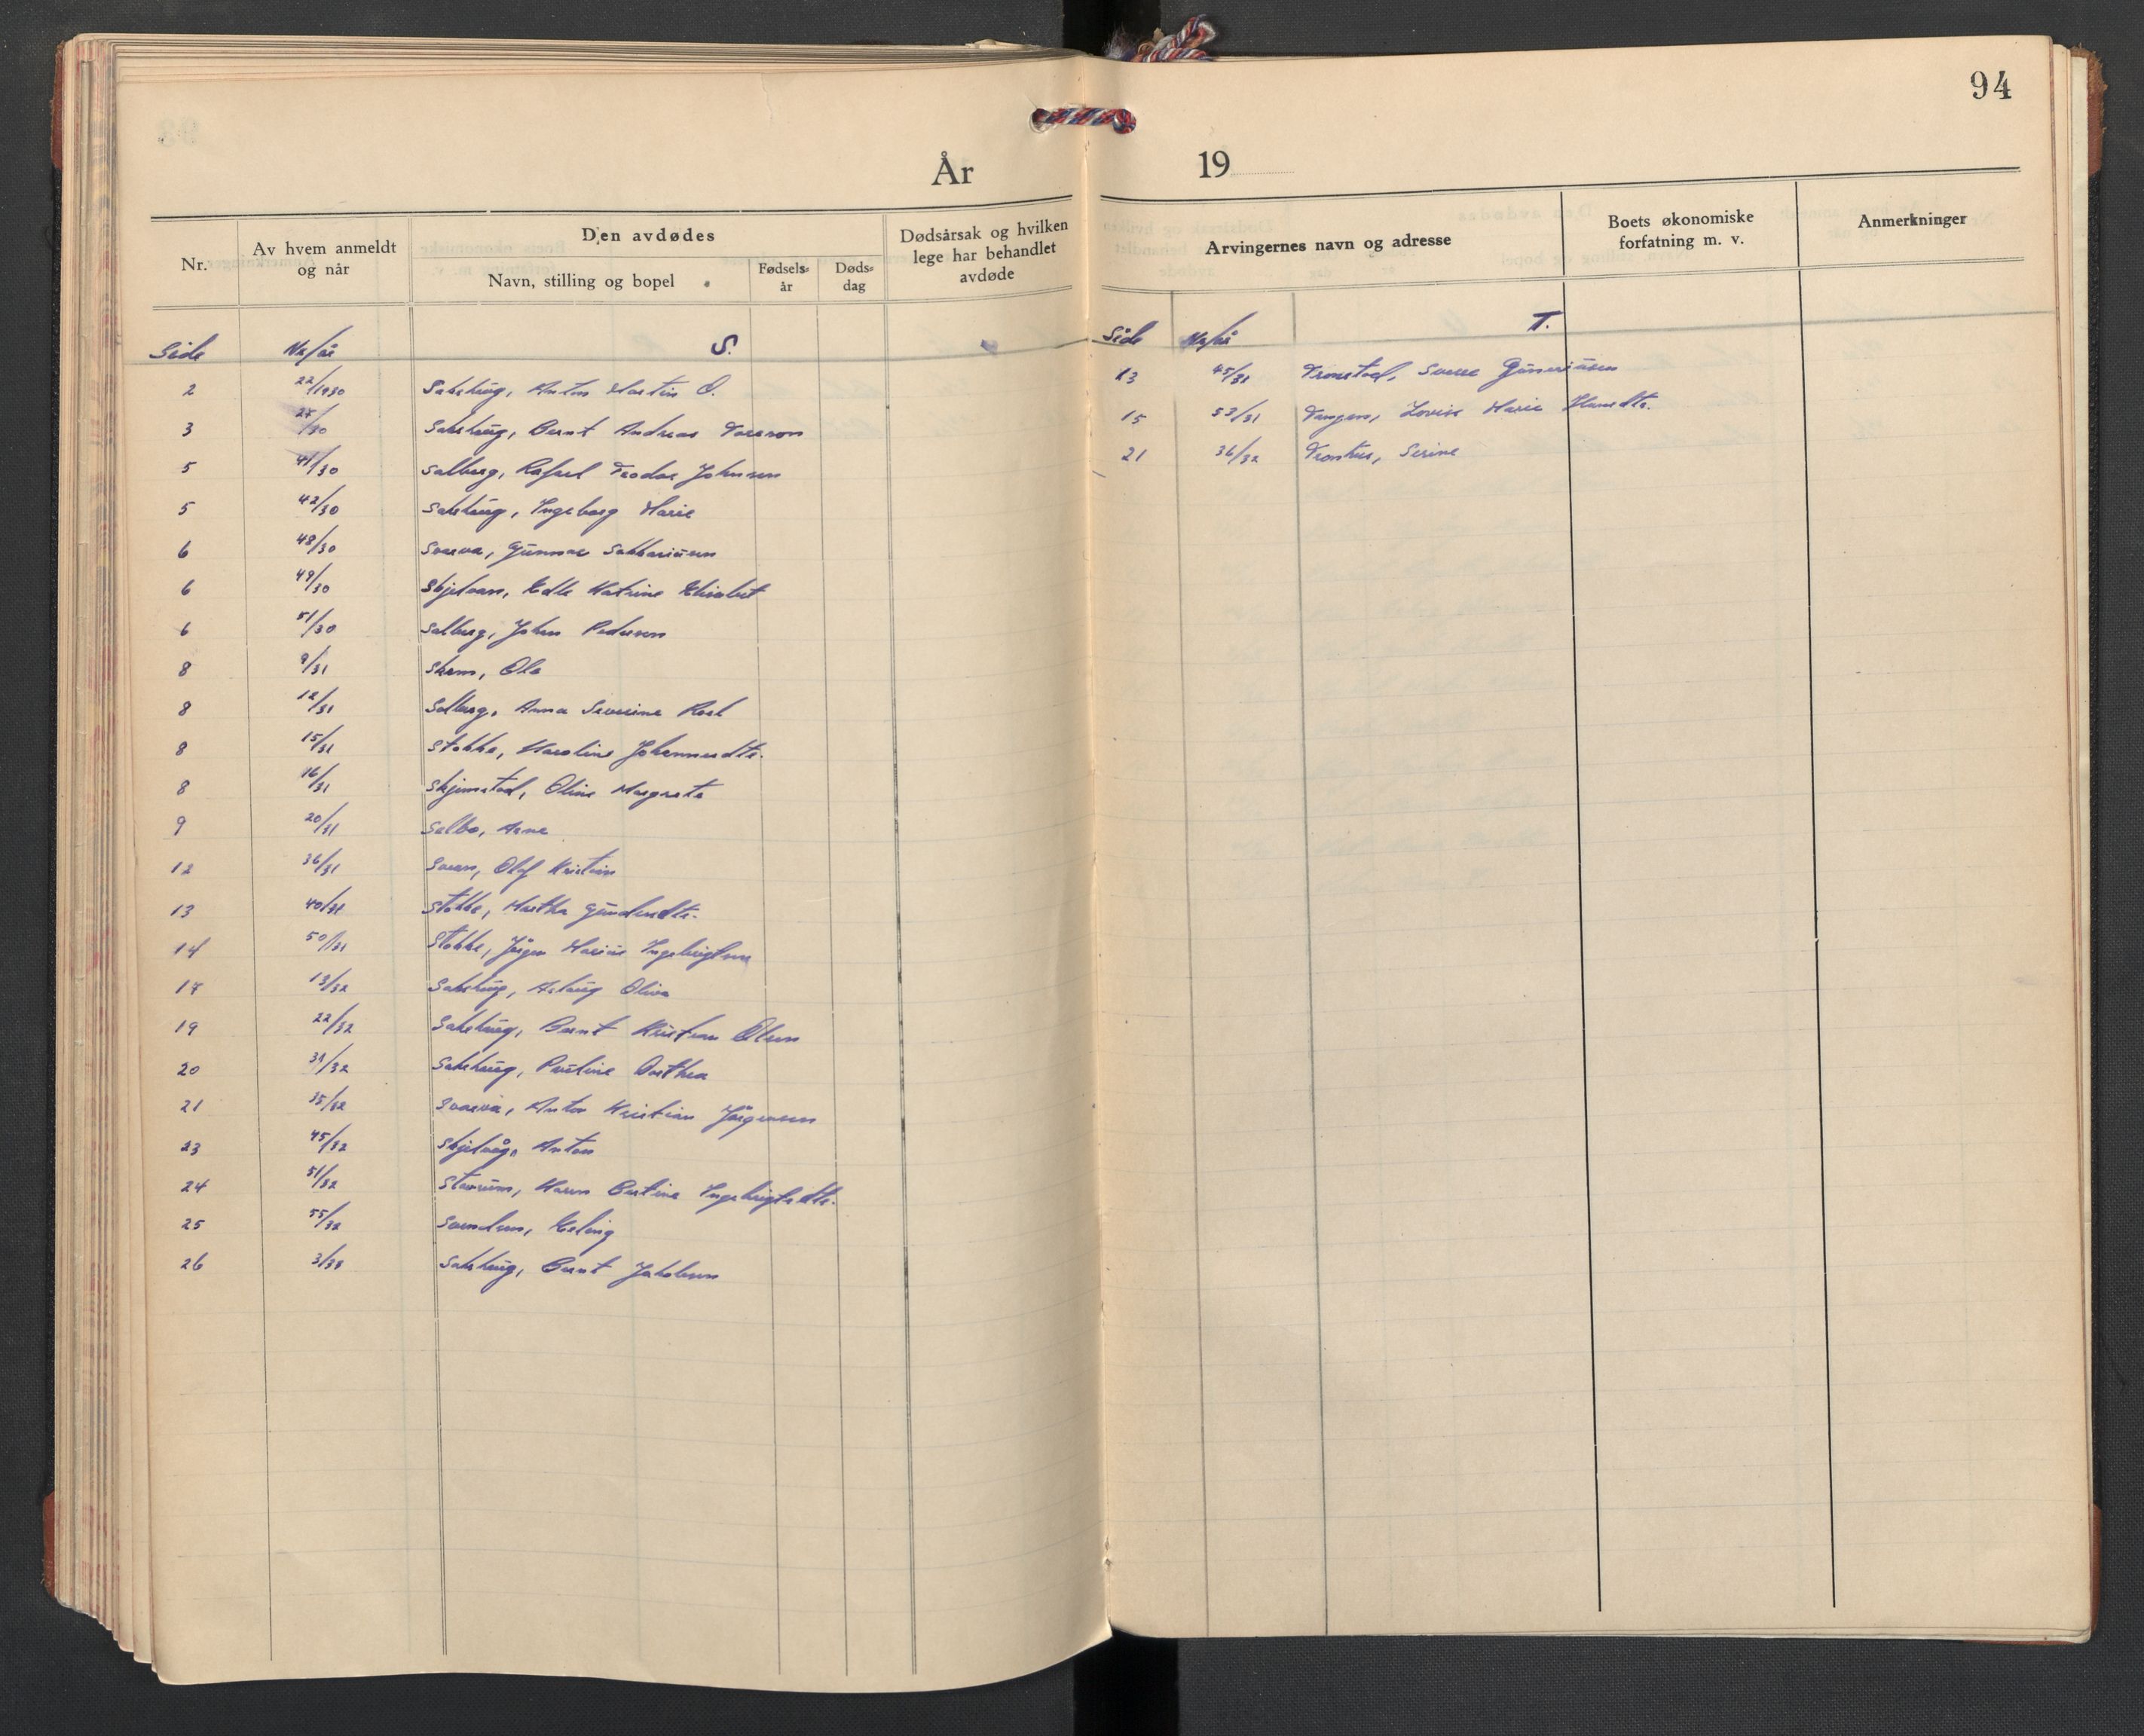 94
År 19
Nr.
Av hvem anmeldt og når
Den avdødes
Navn, stilling og bopel
Fødsels= år
Døds= dag
Dødsårsak og hvilken lege har behandlet avdøde
Arvingernes navn og adresse
Boets økonomiske forfatning m. v.
Anmerkninger
Side Nr/år S.
2 22/1930 Sakshaug, Anton Martin O.
3 /30 Sakshaug, Bernt Andreas
5 41/30 Salberg, Rafael Teodor Johnsen
5 42/30 Sakshaug, Ingeborg Marie
6 48/30 Svarva, Gunnar Sakkariasen
6 49/30 Skjelvan, Edle Katrine Elisabet
6 51/30 Salberg, Johan Pedersen
8 9/31 Ola
8 12/31 Salberg, Anna Severine
8 15/31 Stokke, Karoline Johannesdtr.
8 16/31 Skjemstad, Oline Margrete
9 20/31 Salbo, Arne
12 36/31 Olaf Kristian
13 40/31 Stokke, Martha
14 50/31 Stokke, Jørgen Marius Ingebrigtsen
17 13/32 Sakshaug, Aslaug
19 22/32 Sakshaug, Bernt Kristian Olsen
20 31/32 Sakshaug, Pauline Dorthea
21 35/32 Svarva, Anton Kristian Jørgensen
23 45/32 Anton
24 51/32 Stavrum, Karen Bertine Ingebrigtsdtr.
25 55/32 Svendsen, Erling
26 3/33 Sakshaug, Bernt Jakobsen
Side Nr/år T.
13 45/31 Tronstad, Sverre Guneriusen
15 53/31 Tangen, Lovise Marie Hansdtr.
21 36/32 Serine